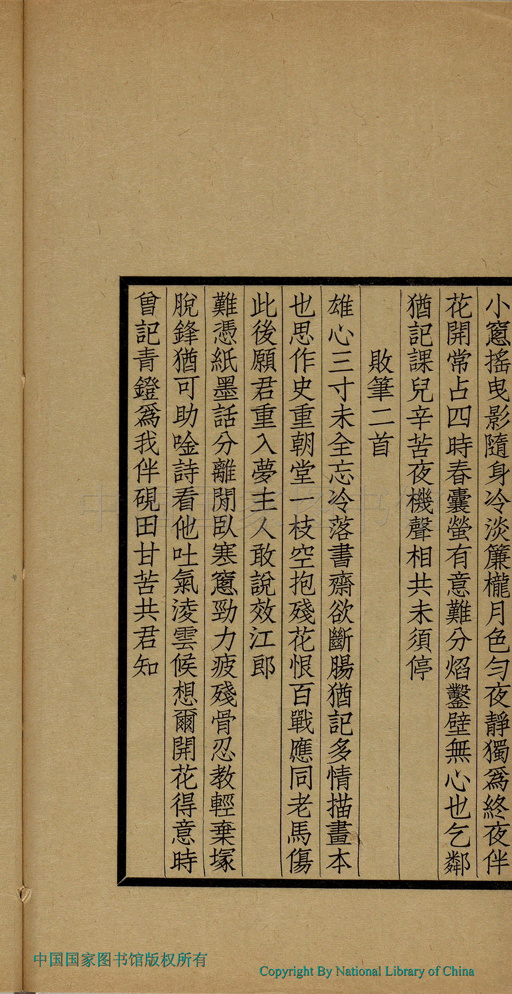 小窻搖曳影隨身冷淡簾櫳月色勻夜靜獨爲終夜伴
花開常占四時春囊螢有意難分焰鑿壁無心也乞鄰
猶記課兒辛苦夜機聲相共未須停
敗筆二首
雄心三寸未全忘冷落書齋欲斷腸猶記多情描畫本
也思作史重朝堂一枝空抱殘花恨百戰應同老馬傷
此後願君重入夢主人敢說效江郎
難憑紙墨話分離閒臥寒窻勁力疲殘骨忍教輕棄塚
脫鋒猶可助唫詩看他吐氣淩雲候想爾開花得意時
曾記青鐙爲我伴硯田甘苦共君知
中国国家图书馆版权所有
Copyright By National Library of China